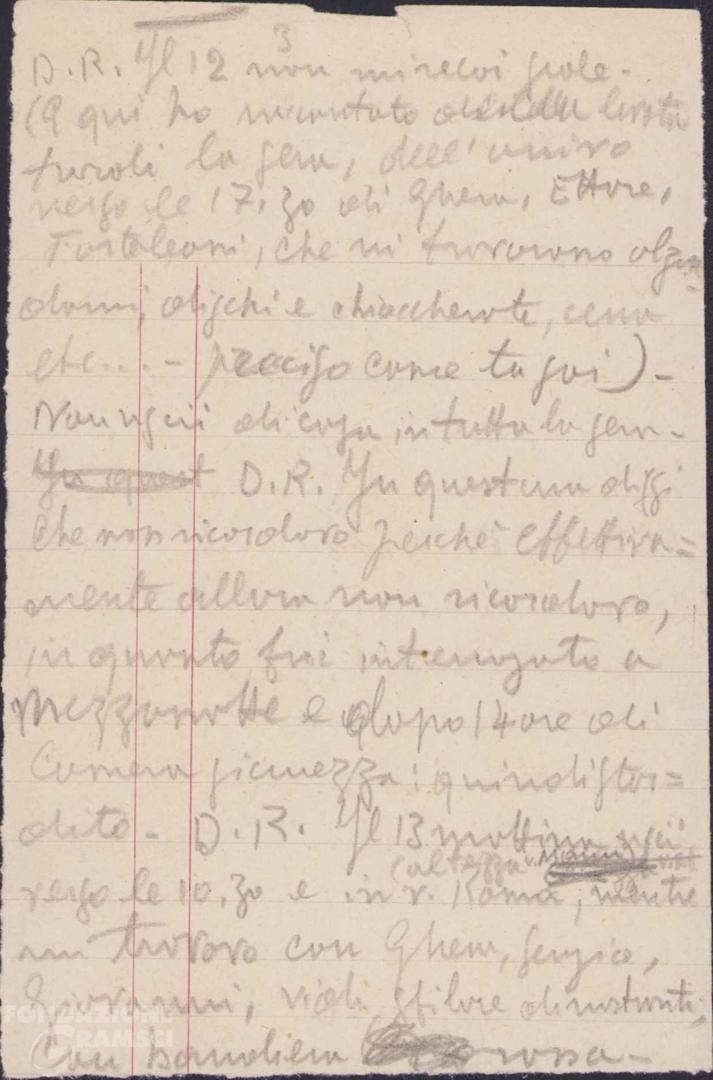 D.R. Il 12 3 non mi recai
(E qui ho raccontato
la sera, dell'arrivo
verso le 17.30 di Ghera, Ettore,
Fortaleoni, che mi trovarono alzan=
domi, dischi e chiaccherate, cena
etc... - preciso come tu sai) -
Non uscii di casa, in tutta la sera -
In quest D.R. In questura dissi
che non ricordavo perché effettiva=
mente allora non ricordavo,
in quanto fui interrogato a
Mezzanotte e dopo 14 ore di
Camera sicurezza: quindi stor=
dito - D.R. Il 13 mattina uscii
(altezza
verso le 10.30 e in v. Roma, mentre
mi trovavo con Ghera, Sergio,
Giovanni, vidi sfilare dimostranti,
con bandiera rossa -
FONDAZIONE
GRAMSCI